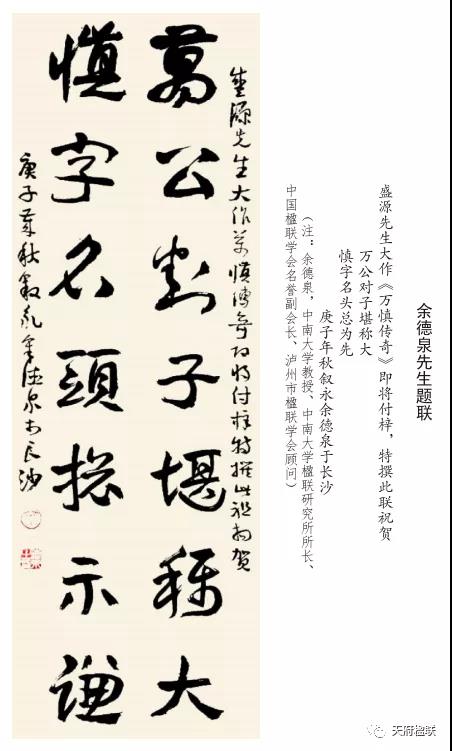 余德泉先生题联
盛源先生大作《万慎传奇》即将付梓，特撰此联祝贺
万公对子堪称大
慎字名头总为先
庚子年秋叙永余德泉于长沙
（注：余德泉，中南大学教授、中南大学楹联研究所所长、
中国楹联学会名誉副会长、泸州市楹联学会顾问）
盛源先生大作万慎傳奇即将付梓特撰此为贺
萬公對子堪稱大
慎字名頭總示謙
庚子秋叙永余德泉于长沙
天府楹联